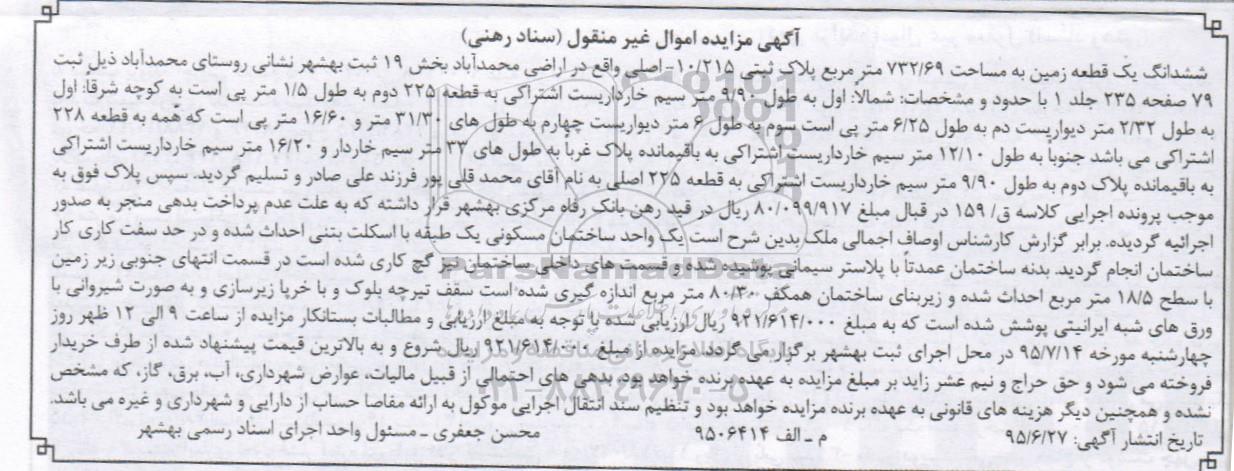 آگهی مزایده اموال غیر منقول (سناد رهنی)
ششدانگ یک قطعه زمین به مساحت ۷۳۲/۶۹ متر مربع پلاک ثبتی ۱۰/۲۱۵- اصلی واقع در اراضی محمدآباد بخش ۱۹ ثبت بهشهر نشانی روستای محمدآباد ذیل ثبت
۷۹ صفحه ۲۳۵ جلد ۱ با حدود و مشخصات: شمالاً: اول به طول ۹/۹۰ متر سیم خارداریست اشتراکی به قطعه ۲۲۵ دوم به طول ۱/۵ متر پی است به کوچه شرقاً: اول
به طول ۲/۳۲ متر دیواریست دم به طول ۶/۲۵ متر پی است سوم به طول ۶ متر دیواریست چهارم به طول های ۳۱/۳۰ متر و ۱۶/۶۰ متر پی است که همه به قطعه ۲۲۸
اشتراکی می باشد جنوباً به طول ۱۲/۱۰ متر سیم خارداریست اشتراکی به باقیمانده پلاک غرباً به طول های ۳۳ متر سیم خاردار و ۱۶/۲۰ متر سیم خارداریست اشتراکی
به باقیمانده پلاک دوم به طول ۹/۹۰ متر سیم خارداریست اشتراکی به قطعه ۲۲۵ اصلی به نام آقای محمد قلی پور فرزند علی صادر و تسلیم گردید. سپس پلاک فوق به
موجب پرونده اجرایی کلاسه ق/ ۱۵۹ در قبال مبلغ ۸۰/۰۹۹/۹۱۷ ریال در قید رهن بانک رفاه مرکزی بهشهر قرار داشته که به علت عدم پرداخت بدهی منجر به صدور
اجرائیه گردیده. برابر گزارش کارشناس اوصاف اجمالی ملک بدین شرح است یک واحد ساختمان مسکونی یک طبقه با اسکلت بتنی احداث شده و در حد سفت کاری کار
ساختمان انجام گردید. بدنه ساختمان عمدتاً با پلاستر سیمانی پوشیده شده و قسمت های داخلی ساختمان نیز گچ کاری شده است در قسمت انتهای جنوبی زیر زمین
با سطح ۱۸/۵ متر مربع احداث شده و زیربنای ساختمان همکف ۸۰/۳۰ متر مربع اندازه گیری شده است سقف تیرچه بلوک و با خرپا زیرسازی و به صورت شیروانی با
ورق های شبه ایرانیتی پوشش شده است که به مبلغ ۹۲۱/۶۱۴/۰۰۰ ریال ارزیابی شده با توجه به مبلغ ارزیابی و مطالبات بستانکار مزایده از ساعت ۹ الی ۱۲ ظهر روز
چهارشنبه مورخه ۹۵/۷/۱۴ در محل اجرای ثبت بهشهر برگزار می گردد. مزایده از مبلغ ۹۲۱/۶۱۴/۰۰۰ ریال شروع و به بالاترین قیمت پیشنهاد شده از طرف خریدار
فروخته می شود و حق حراج و نیم عشر زاید بر مبلغ مزایده به عهده برنده خواهد بود. بدهی های احتمالی از قبیل مالیات، عوارض شهرداری، آب، برق، گاز، که مشخص
نشده و همچنین دیگر هزینه های قانونی به عهده برنده مزایده خواهد بود و تنظیم سند انتقال اجرایی موکول به ارائه مفاصا حساب از دارایی و شهرداری و غیره می باشد.
تاریخ انتشار آگهی: ۹۵/۶/۲۷ م ـ الف ۹۵۰۶۴۱۴ محسن جعفری ـ مسئول واحد اجرای اسناد رسمی بهشهر
ParsNamadData
۰۲۱-۸۸۳۴۹۶۷۰-۵